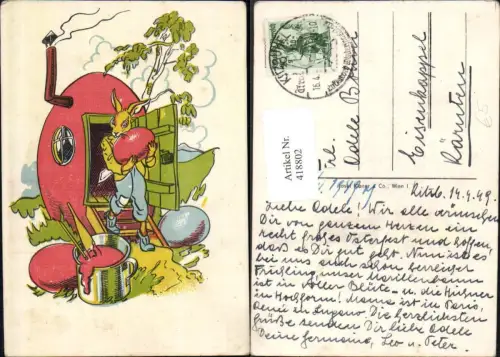 Artikel Nr.
418802
16.4.
Frl.
Adele
Eisenkappel
Kärnten
& Co., Wien I
14.4.49.
Liebe Adele! Wir alle wünschen
Dir von ganzem Herzen ein
recht frohes Osterfest und hoffen,
dass es Dir gut geht. Nun ist es
bei uns auch schon herrlicher
Frühling, unser Marillenbaum
ist in voller Blüte – u. die Hühner
in Hochform! Mama ist in Paris,
in Lugano. Die herzlichsten
Grüße senden Dir liebe Adele
Deine Germaine, Leo u. Peter.